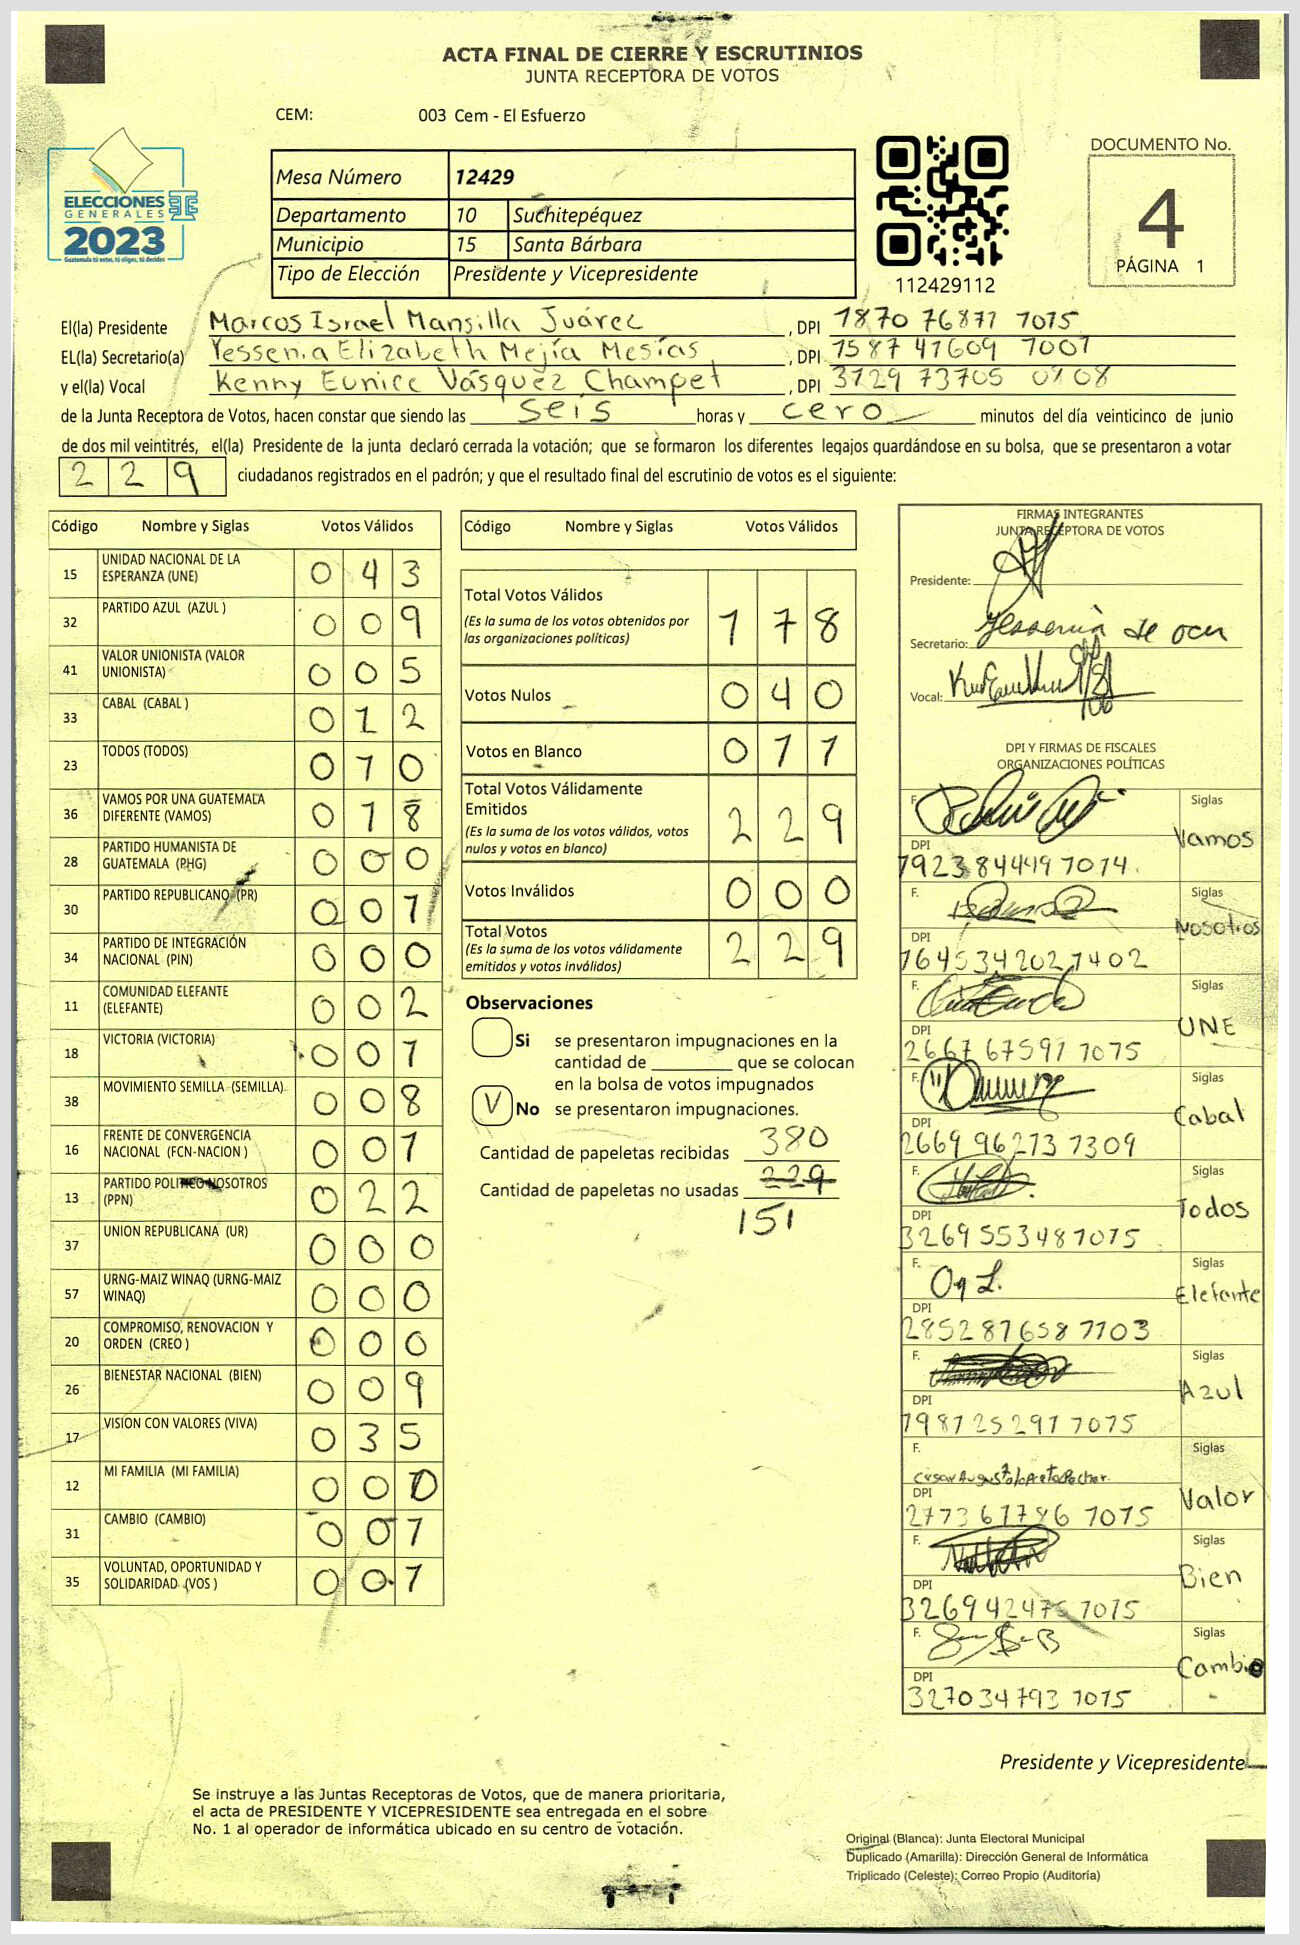 ACTA FINAL DE CIERRE Y ESCRUTINIOS
JUNTA RECEPTORA DE VOTOS
CEM: 003 Cem - El Esfuerzo
ELECCIONES
GENERALES
2023
Guatemala tú eres, tú eliges, tú decides
Mesa Número 12429
Departamento 10 Suchitepéquez
Municipio 15 Santa Bárbara
Tipo de Elección Presidente y Vicepresidente
112429112
DOCUMENTO No.
4
PÁGINA 1
El(la) Presidente Marcos Israel Mansilla Juárez , DPI 1870 76877 1015
EL(la) Secretario(a) Yessenia Elizabeth Mejía Mesías , DPI 1587 41609 1001
y el(la) Vocal Kenny Eunice Vásquez Champet , DPI 3129 73705 0108
de la Junta Receptora de Votos, hacen constar que siendo las seis horas y cero minutos del día veinticinco de junio
de dos mil veintitrés, el(la) Presidente de la junta declaró cerrada la votación; que se formaron los diferentes legajos guardándose en su bolsa, que se presentaron a votar
229 ciudadanos registrados en el padrón; y que el resultado final del escrutinio de votos es el siguiente:
Código Nombre y Siglas Votos Válidos
15 UNIDAD NACIONAL DE LA ESPERANZA (UNE) 043
32 PARTIDO AZUL (AZUL ) 009
41 VALOR UNIONISTA (VALOR UNIONISTA) 005
33 CABAL (CABAL ) 012
23 TODOS (TODOS) 010
36 VAMOS POR UNA GUATEMALA DIFERENTE (VAMOS) 018
28 PARTIDO HUMANISTA DE GUATEMALA (PHG) 000
30 PARTIDO REPUBLICANO (PR) 001
34 PARTIDO DE INTEGRACIÓN NACIONAL (PIN) 000
11 COMUNIDAD ELEFANTE (ELEFANTE) 002
18 VICTORIA (VICTORIA) 001
38 MOVIMIENTO SEMILLA (SEMILLA) 008
16 FRENTE DE CONVERGENCIA NACIONAL (FCN-NACION ) 001
13 PARTIDO POLITICO NOSOTROS (PPN) 022
37 UNION REPUBLICANA (UR) 000
57 URNG-MAIZ WINAQ (URNG-MAIZ WINAQ) 000
20 COMPROMISO, RENOVACION Y ORDEN (CREO ) 000
26 BIENESTAR NACIONAL (BIEN) 009
17 VISION CON VALORES (VIVA) 035
12 MI FAMILIA (MI FAMILIA) 000
31 CAMBIO (CAMBIO) 001
35 VOLUNTAD, OPORTUNIDAD Y SOLIDARIDAD (VOS ) 001
Código Nombre y Siglas Votos Válidos
Total Votos Válidos 178
(Es la suma de los votos obtenidos por las organizaciones políticas)
Votos Nulos 040
Votos en Blanco 011
Total Votos Válidamente Emitidos 229
(Es la suma de los votos válidos, votos nulos y votos en blanco)
Votos Inválidos 000
Total Votos 229
(Es la suma de los votos válidamente emitidos y votos inválidos)
Observaciones
Si se presentaron impugnaciones en la
cantidad de que se colocan
en la bolsa de votos impugnados
V No se presentaron impugnaciones.
Cantidad de papeletas recibidas 380
Cantidad de papeletas no usadas 229
151
FIRMAS INTEGRANTES
JUNTA RECEPTORA DE VOTOS
Presidente:
Secretario: Yessenia de
Vocal:
DPI Y FIRMAS DE FISCALES
ORGANIZACIONES POLÍTICAS
F. Siglas Vamos
DPI 1923844497014
F. Siglas Nosotros
DPI 1645342021402
F. Siglas UNE
DPI 2667 67591 1015
F. Siglas Cabal
DPI 2669 96273 1309
F. Siglas Todos
DPI 3269 55348 1015
F. Siglas Elefante
DPI 2852876587103
F. Siglas Azul
DPI 1981 25291 1015
F. Siglas Valor
DPI 2773 61786 1015
F. Siglas Bien
DPI 3269 42475 1015
F. Siglas Cambio
DPI 3270 34793 1015
Presidente y Vicepresidente
Se instruye a las Juntas Receptoras de Votos, que de manera prioritaria,
el acta de PRESIDENTE Y VICEPRESIDENTE sea entregada en el sobre
No. 1 al operador de informática ubicado en su centro de votación.
Original (Blanca): Junta Electoral Municipal
Duplicado (Amarilla): Dirección General de Informática
Triplicado (Celeste): Correo Propio (Auditoría)